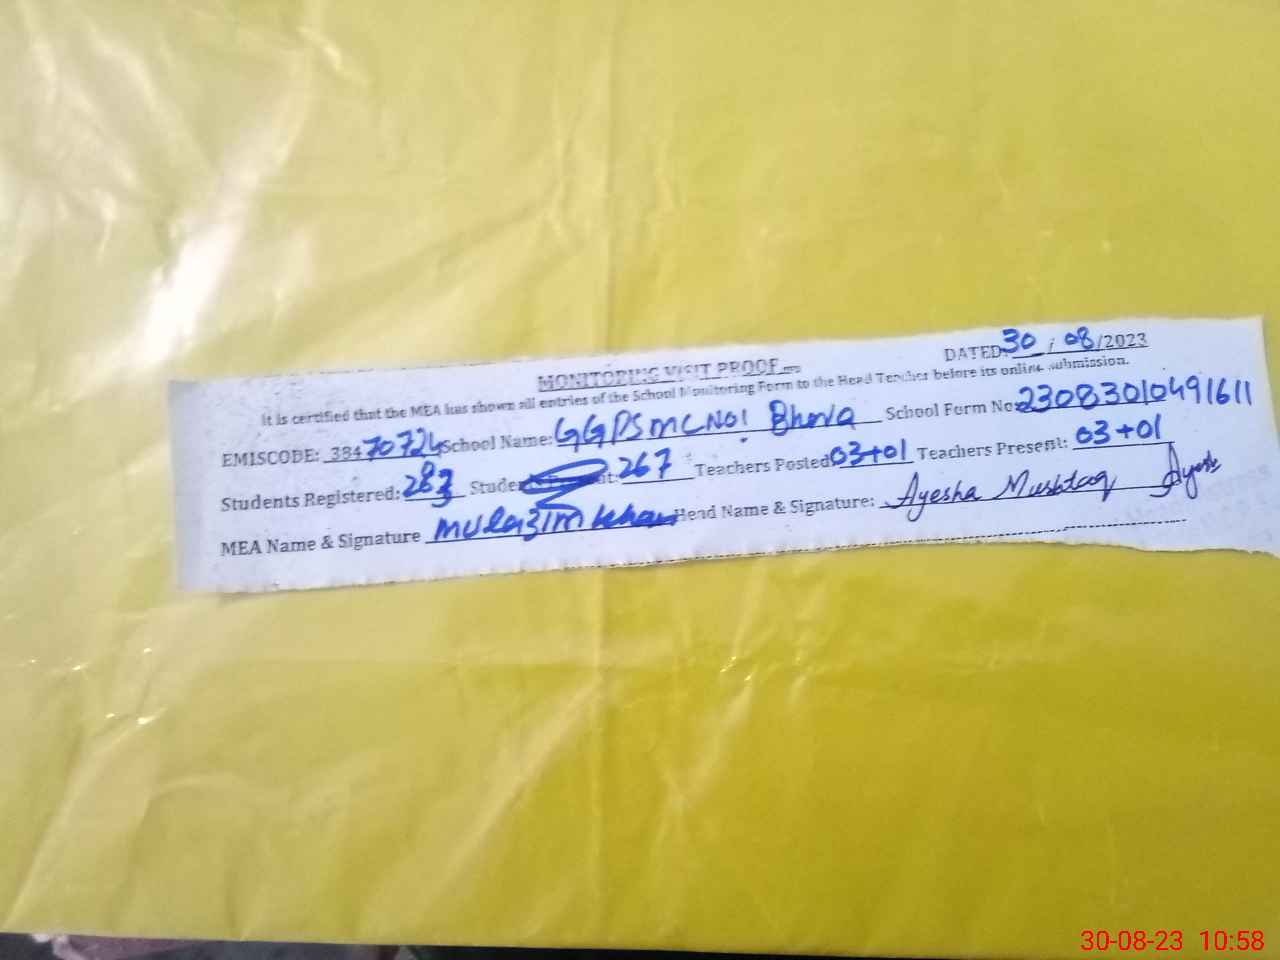 MONITORING VISIT PROOF
DATED 30/08/2023
It is certified that the MEA has shown all entries of the School Monitoring Form to the Head Teacher before its online submission.
EMISCODE: 38470724 School Name: GGPS MC NO1 Bhera School Form No: 23083010491611
Students Registered: 283 267 Teachers Posted 03+01 Teachers Present: 03+01
MEA Name & Signature Mulazim Khan Head Name & Signature: Ayesha Mushtaq Ayesh
30-08-23 10:58